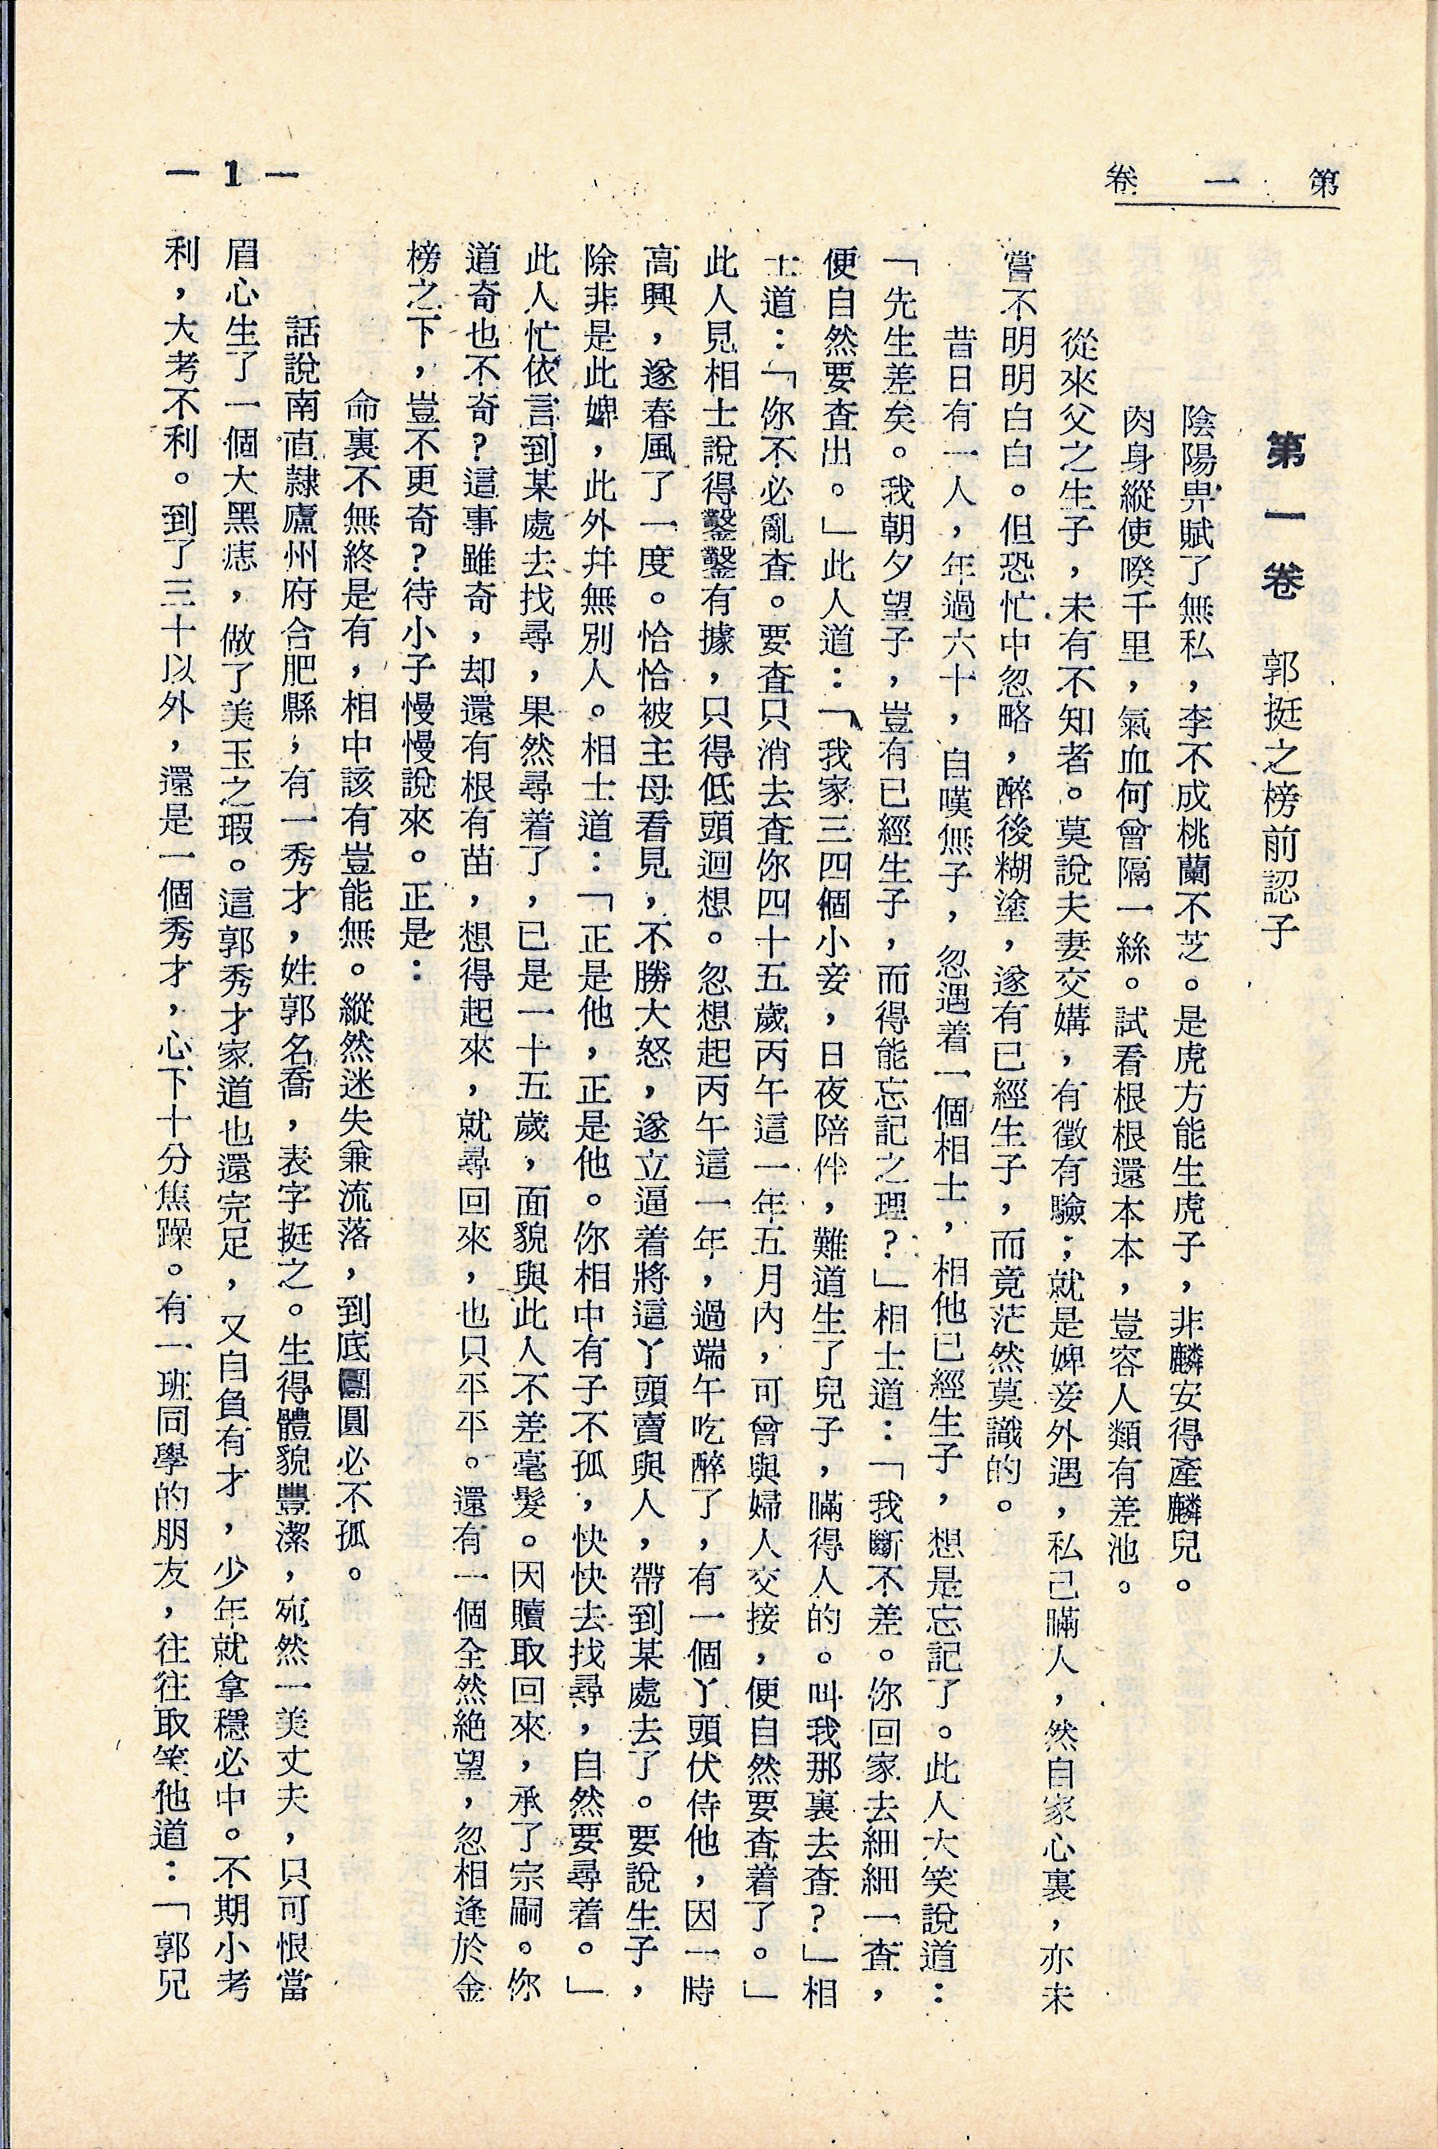 第一卷
第一卷　郭挺之榜前認子
陰陽畀賦了無私，李不成桃蘭不芝。是虎方能生虎子，非麟安得產麟兒。
肉身縱使暌千里，氣血何曾隔一絲。試看根根還本本，豈容人類有差池。
從來父之生子，未有不知者。莫說夫妻交媾，有徵有驗；就是婢妾外遇，私己瞞人，然自家心裏，亦未
嘗不明明白白。但恐忙中忽略，醉後糊塗，遂有已經生子，而竟茫然莫識的。
昔日有一人，年過六十，自嘆無子，忽遇着一個相士，相他已經生子，想是忘記了。此人大笑說道：
「先生差矣。我朝夕望子，豈有已經生子，而得能忘記之理？」相士道：「我斷不差。你回家去細細一查，
便自然要查出。」此人道：「我家三四個小妾，日夜陪伴，難道生了兒子，瞞得人的。叫我那裏去查？」相
士道：「你不必亂查。要查只消去查你四十五歲丙午這一年五月內，可曾與婦人交接，便自然要查着了。」
此人見相士說得鑿鑿有據，只得低頭迴想。忽想起丙午這一年，過端午吃醉了，有一個丫頭伏侍他，因一時
高興，遂春風了一度。恰恰被主母看見，不勝大怒，遂立逼着將這丫頭賣與人，帶到某處去了。要說生子，
除非是此婢，此外幷無別人。相士道：「正是他，正是他。你相中有子不孤，快快去找尋，自然要尋着。」
此人忙依言到某處去找尋，果然尋着了，已是一十五歲，面貌與此人不差毫髮。因贖取回來，承了宗嗣。你
道奇也不奇？這事雖奇，却還有根有苗，想得起來，就尋回來，也只平平。還有一個全然絕望，忽相逢於金
榜之下，豈不更奇？待小子慢慢說來。正是：
命裏不無終是有，相中該有豈能無。縱然迷失兼流落，到底團圓必不孤。
話說南直隸廬州府合肥縣，有一秀才，姓郭名喬，表字挺之。生得體貌豐潔，宛然一美丈夫，只可恨當
眉心生了一個大黑痣，做了美玉之瑕。這郭秀才家道也還完足，又自負有才，少年就拿穩必中。不期小考
利，大考不利。到了三十以外，還是一個秀才，心下十分焦躁。有一班同學的朋友，往往取笑他道：「郭兄
— 1 —